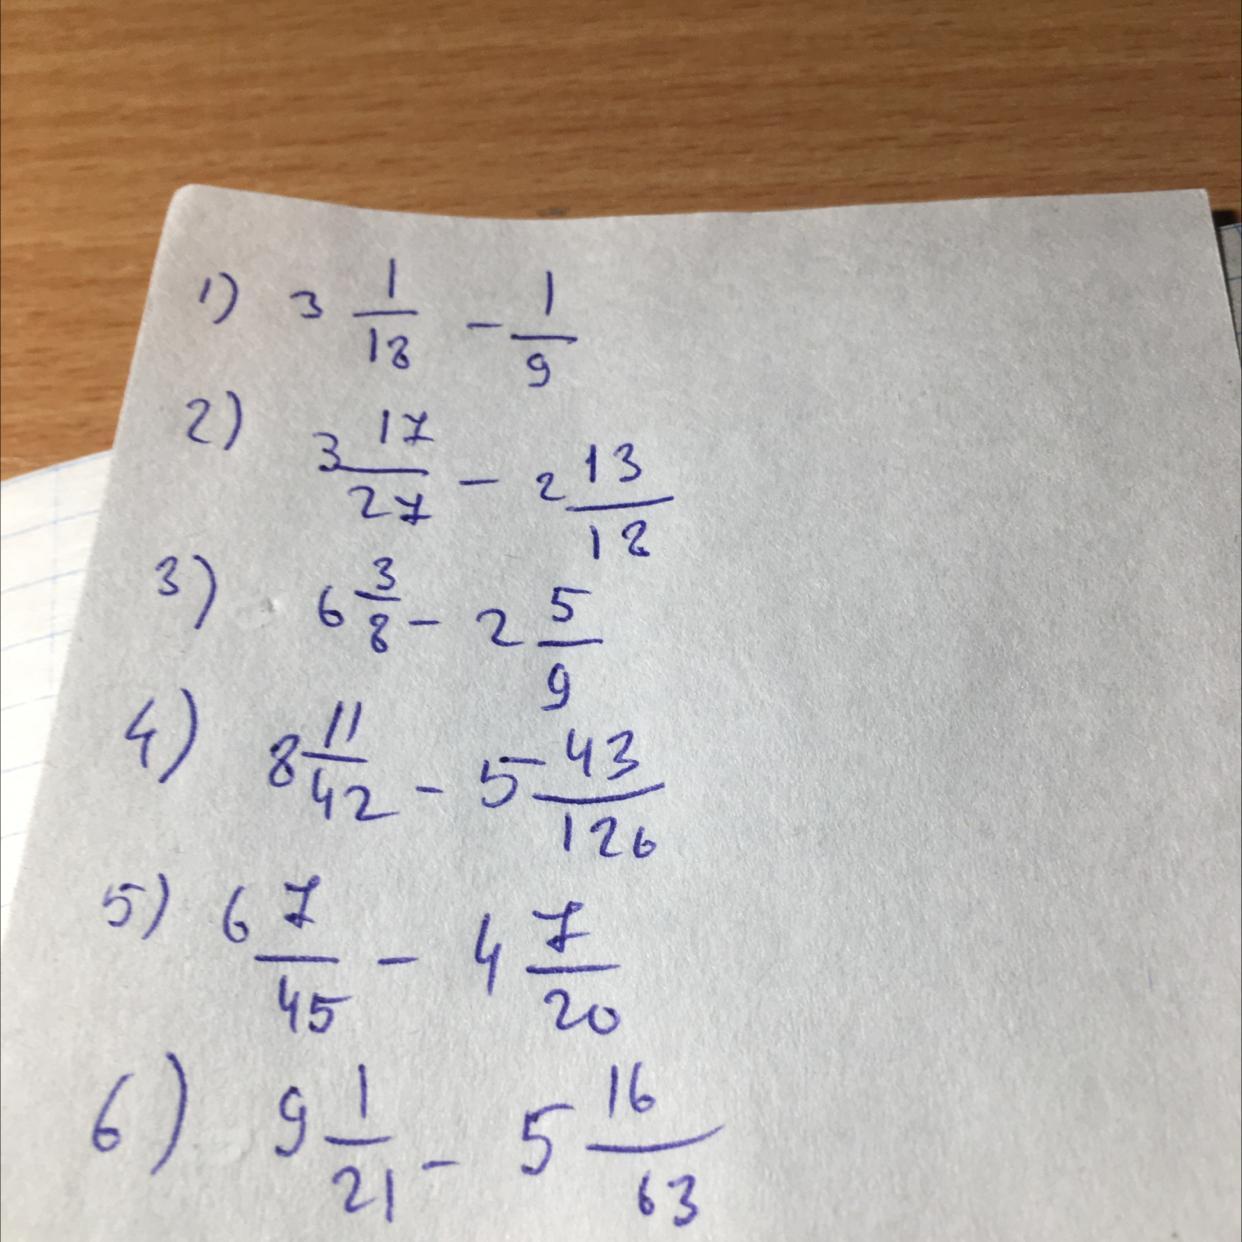 1) 3 1/18 - 1/9
2) 3 17/27 - 2 13/18
3) 6 3/8 - 2 5/9
4) 8 11/42 - 5 43/126
5) 6 7/45 - 4 7/20
6) 9 1/21 - 5 16/63